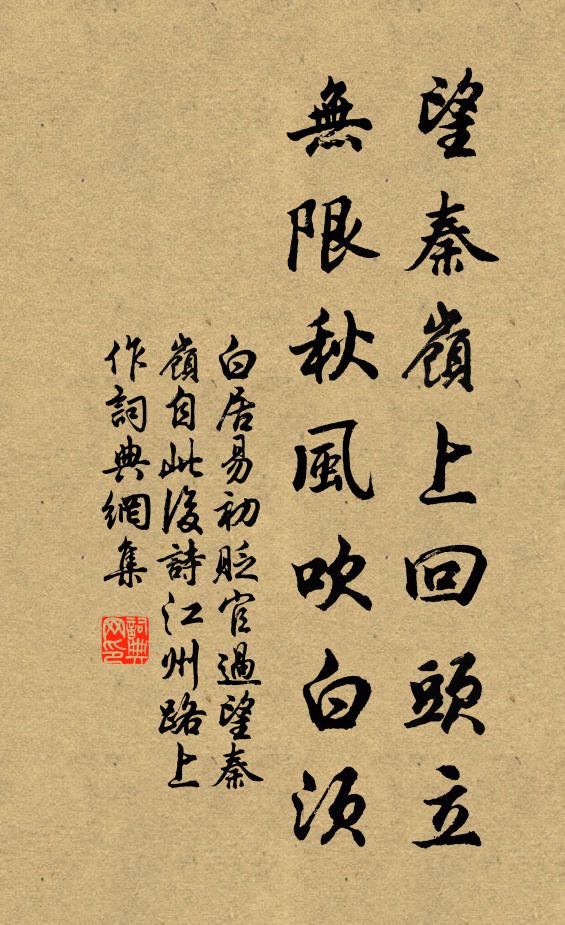 望秦嶺上回頭立
無限秋風吹白須
白居易初貶官過望秦
嶺自此後詩江州路上
作詞典網集
詞典
网印